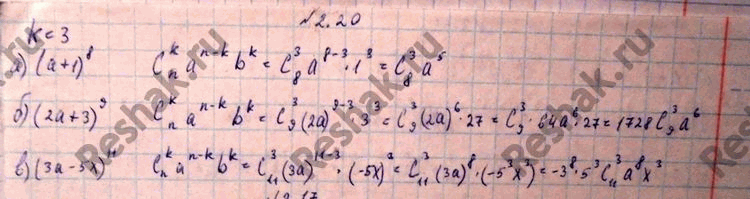 №2.20
k=3
а) (a+1)⁸ Cₙᵏ aⁿ⁻ᵏ bᵏ = C₈³ a⁸⁻³ · 1³ = C₈³ a⁵
б) (2a+3)⁹ Cₙᵏ aⁿ⁻ᵏ bᵏ = C₉³ (2a)⁹⁻³ · 3³ = C₉³ (2a)⁶ · 27 = C₉³ · 64a⁶ · 27 = 1728 C₉³ a⁶
в) (3a-5x)¹¹ Cₙᵏ aⁿ⁻ᵏ bᵏ = C₁₁³ (3a)¹¹⁻³ · (-5x)³ = C₁₁³ (3a)⁸ · (-5³x³) = -3⁸ · 5³ C₁₁³ a⁸ x³
Reshak.ru Reshak.ru Reshak.ru Reshak.ru